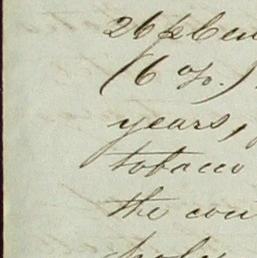 26 p Cen
(6 %.)
years,
tobacco
the cou